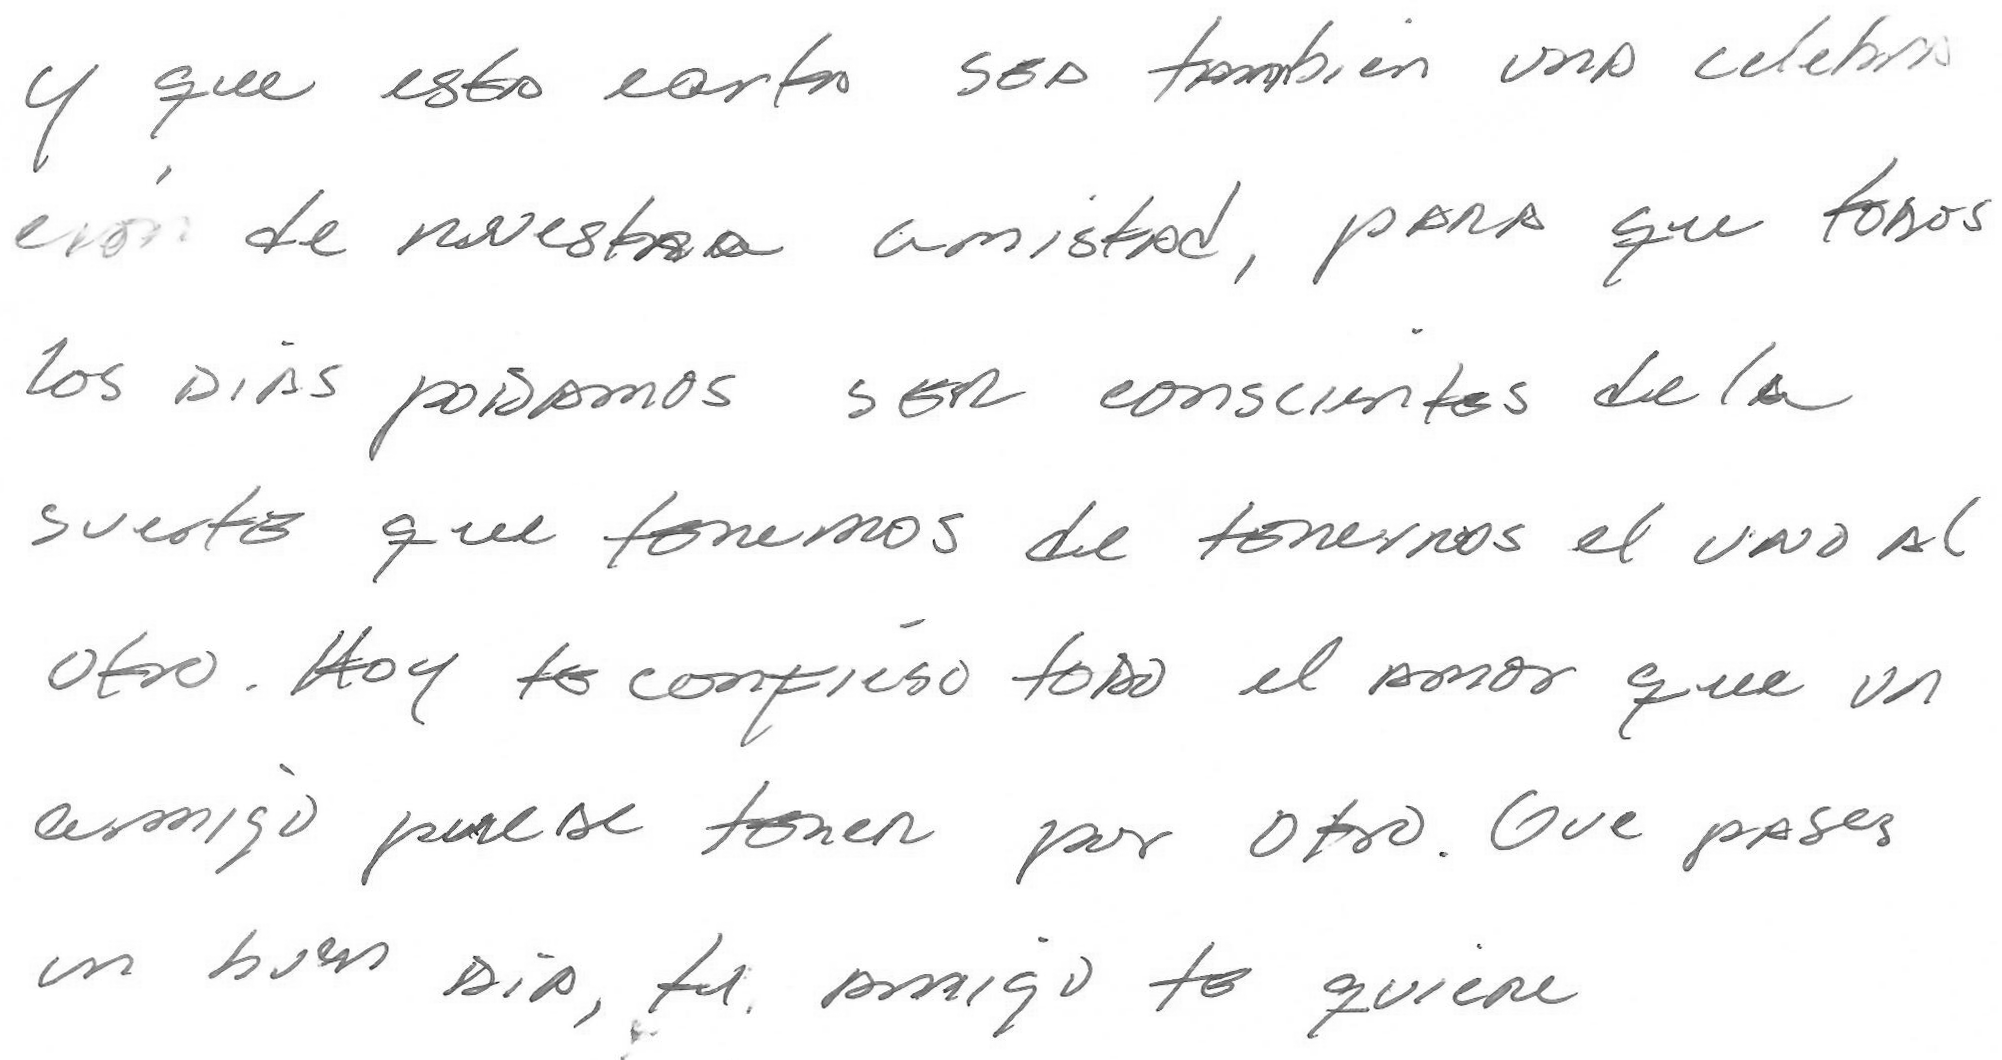 y que esta carta sea tambien una celebra
ción de nuestra amistad, para que todos
los dias podamos ser conscientes de la
suerte que tenemos de tenernos el uno al
otro. Hoy te confieso todo el amor que un
amigo puede tener por otro. Que pases
un buen dia, tu amigo te quiere